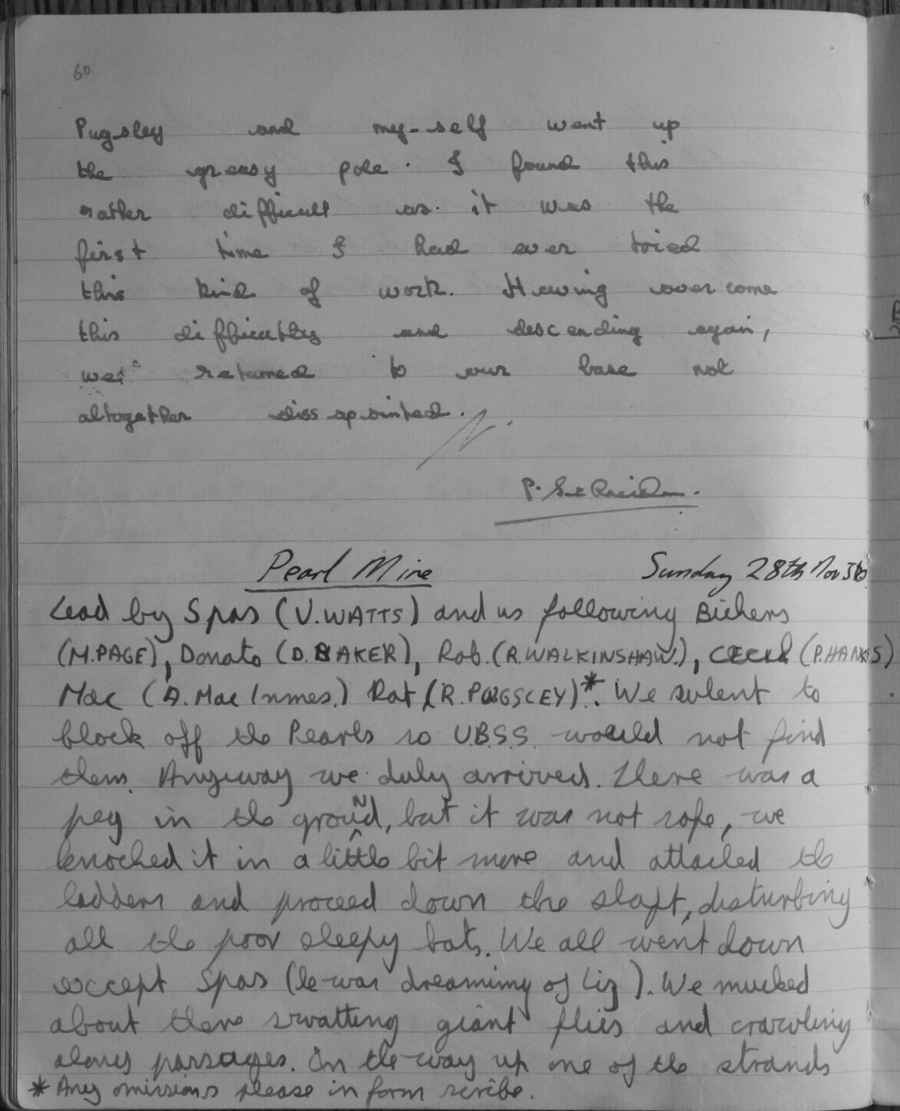 60
Pugsley and my-self went up
the greasy pole. I found this
rather difficult as it was the
first time I had ever tried
this kind of work. Having over come
this difficultly and descending again,
we returned to our base not
altogether diss apointed.
P.
Pearl Mine Sunday 28th Nov
Lead by Spas (V. WATTS) and us following Bickers
(M. PAGE), Donato (D. BAKER), Rob. (R. WALKINSHAW.), CECIL (P. HANKS)
Mac (A. Mac Innes.) Rat (R. PUGSLEY)*. We went to
block off the Pearls so U.B.S.S. would not find
them. Anyway we duly arrived. There was a
peg in the grouNd, but it was not safe, we
knocked it in a little bit more and attached the
ladders and proceed down the shaft, disturbing
all the poor sleepy bats. We all went down
except Spas (he was dreamimg of Liz). We mucked
about there swatting giant flies and crawling
along passages. On the way up one of the strands
* Any omissions please in form scribe.